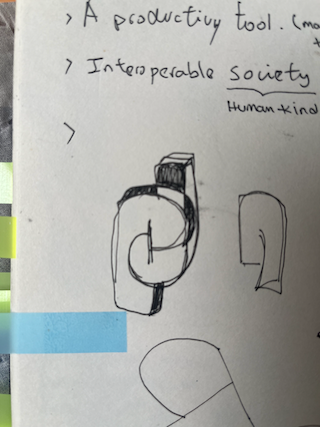 > A productivy tool. (
> Interoperable society
Human-kind
>